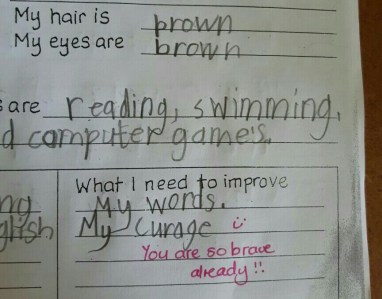 My hair is brown
My eyes are brown
s are reading, swimming,
d computer games.
What I need to improve
ng My words.
glish My Curage
You are so brave
already !!